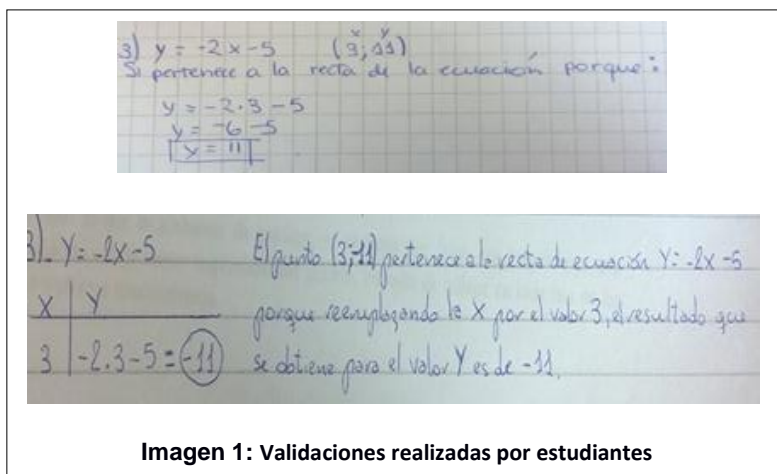 3) y = -2x - 5 (3; 11)
x y
Si pertenece a la recta de la ecuación porque:
y = -2.3 - 5
y = -6 - 5
y = 11
3)- Y = -2x - 5 El punto (3;-11) pertenece a la recta de ecuación Y: -2x - 5
X Y porque reemplazando la X por el valor 3, el resultado que
3 -2.3 - 5 = -11 se obtiene para el valor Y es de -11.
Imagen 1: Validaciones realizadas por estudiantes